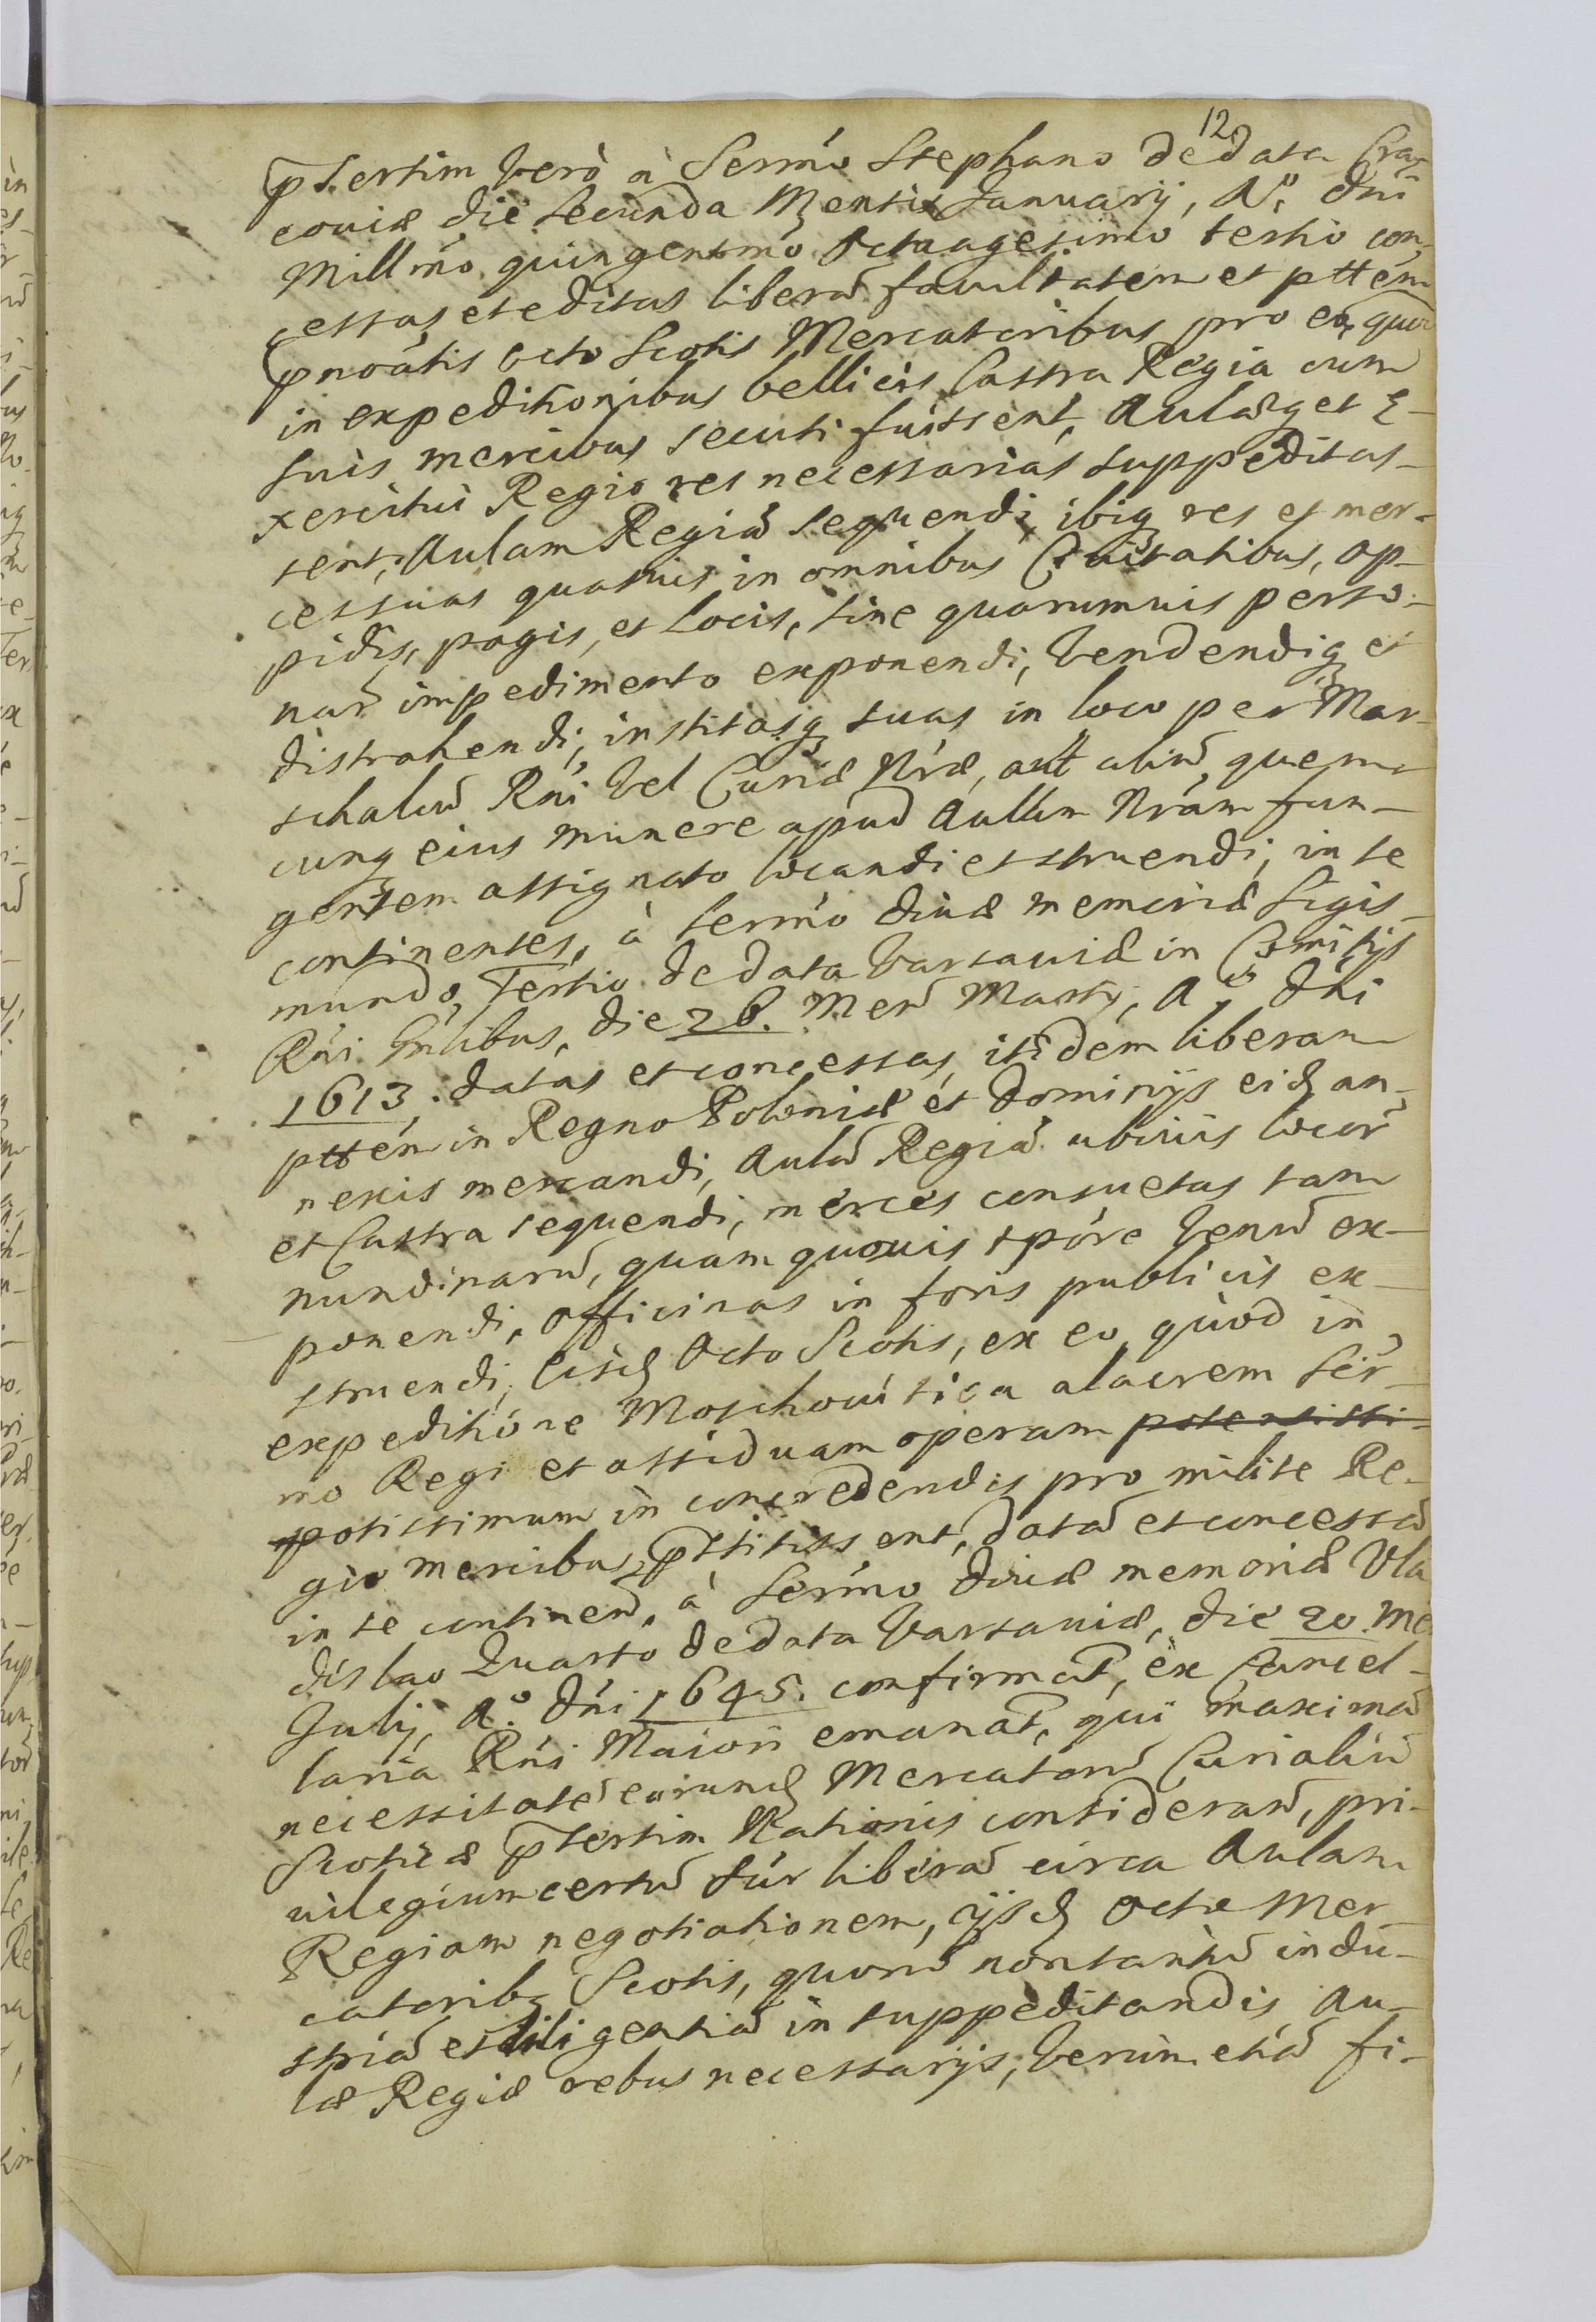 12
pṡertim verò à Sermo Stephano de data Cra-
couiæ die secunda Mensis Januarij, Ao. dni
Millmo quingentmo Octuagesimo tertio con-
cessas et editas liberã facultatem et pttem
pnoatis octo Scotis Mercatoribus pro eo, quod
in expeditionibus bellicis Castra Regia cum
suis mercibus secuti fuissent, Aulæq et E-
xercitui Regio res necessarias suppeditas-
sent, Aulam Regiã sequendi, ibiq res et mer-
ces suas quasuis in omnibus Ciuitatibus, op-
pidis, pagis, et locis, sine quorumuis perso-
narũ impedimento exponendi, vendendiq et
distrahendi, institasq suas in loco per Mar-
schalcũ Rni vel Curiæ Nræ, aut aliũ, quem-
cunq eius munere apud Aulam Nram fun-
gentem assignato locandi et struendi, in se
continentes, à Sermo diuæ memoriæ Sigis-
mundo Tertio de data Varsauiæ in Comitijs
Rni Gnlibus, die 26. Men Martij, Ao dni
1613. datas et concessas, itidem liberam
pttem in Regno Poloniæ et Dominijs eid an-
nexis mercandi, Aulã Regiã ubiuis locor̃
et Castra sequendi, merces consuetas tam
nundinarũ, quàm quouis tpore venũ ex-
ponendi, officinas in foris publicis ex-
struendi, eisd Octo Scotis, ex eo, quòd in
expeditione Moschouitica alacrem Ser-
mo Regi et assiduam operam potentissi-
potissimum in concredendis pro milite Re-
gio mercibus pstitissent, datã et concessã
in se continen, à Sermo diuæ memoriæ Vla
dislao Quarto de data Varsauiæ, die 20. Me
Julij, Ao. dni 1645. confirmat, ex Cancel-
laria Rni Maiori emanat, qui maximã
necessitatẽ eorund Mercatorũ Curialiũ
Scoticæ pṡertim Nationis considerañ, pri-
uilegium certũ sup liberã circa Aulam
Regiam negotiationem, ijsd Octo Mer-
catoribq Scotis, quorũ non tantũ indu-
striã et diligentiã in suppeditandis Au-
læ Regiæ rebus necessarijs, verùm etiã fi-